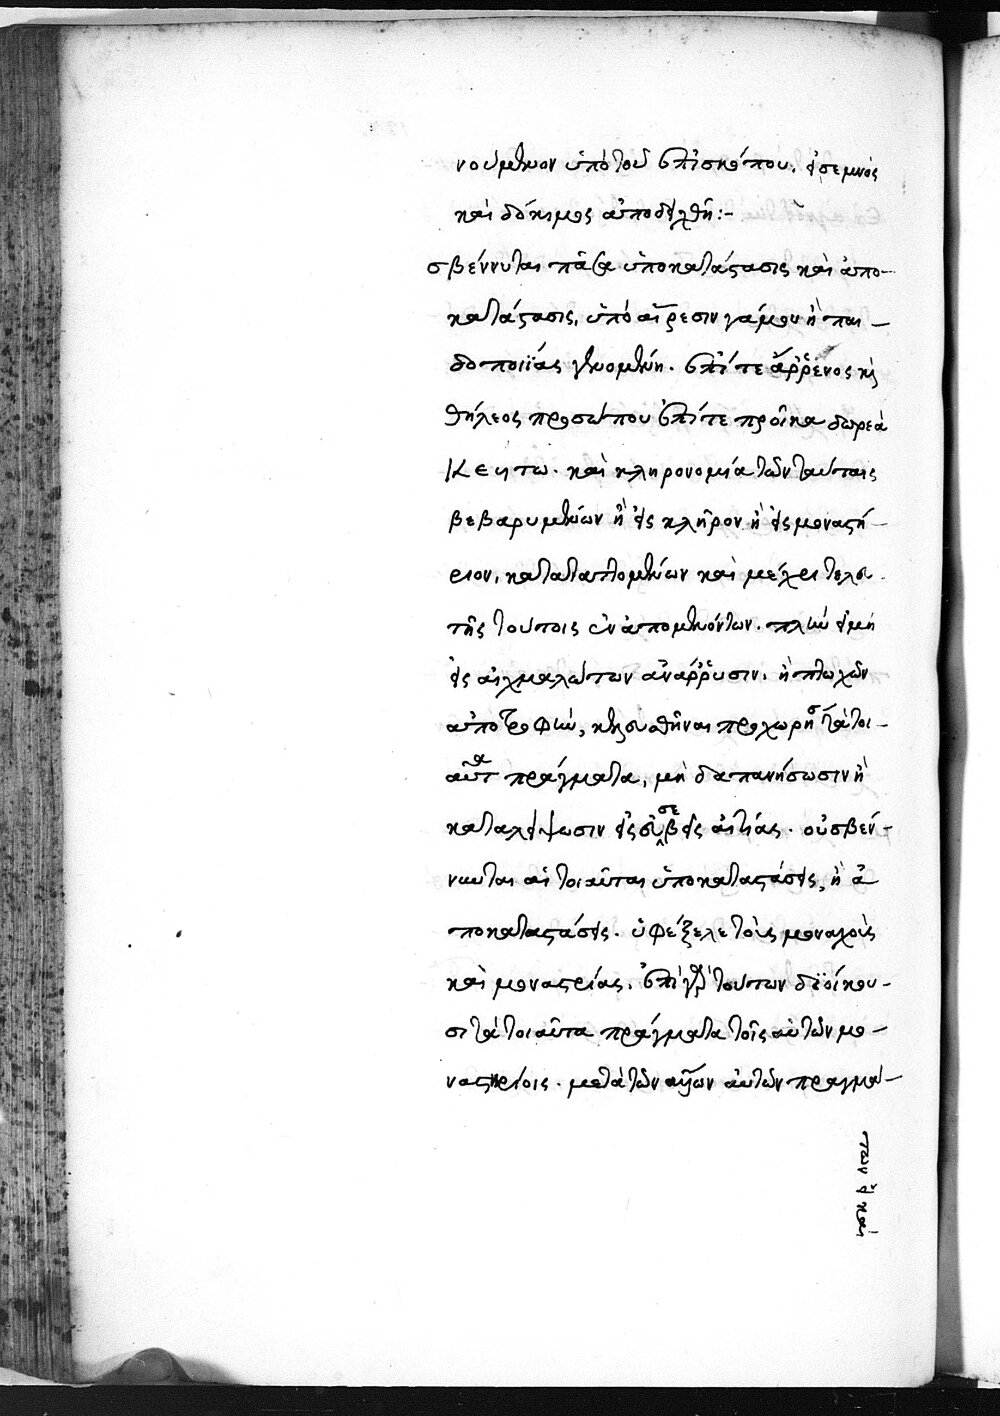 νούμενον ὑπὸ τοῦ ἐπισκόπου. εἰ σεμνὸς
καὶ δόκιμος ἀποδειχθῆ:-
σβέννυται πᾶσα ὑποκατάστασις καὶ ἀπο-
κατάστασις, ὑπὸ αἵρεσιν γάμου ἢ παι-
δοποιΐας γενομένη. ἐπί τε ἄρρενος κὶ
θήλεος προσώπου ἐπί τε προῖκα δωρεὰ
καὶ κληρονομία τῶν ταύταις
βεβαρυμένων ἢ εἰς κλῆρον ἢ εἰς μοναστή-
ριον, κατατατομένων καὶ μέχρι τελευ
τῆς τούτοις ἐναπομενόντων. πλὴν εἰ μὴ
εἰς αἰχμαλώτων ἀνάρρυσιν. ἢ πτωχῶν
ἀποτροφὴν, προχωρῆσ τὰ τοι-
αῦτα πράγματα, μὴ δαπανήσωσιν ἢ
καταλείψωσιν εἰς εὐσεβεῖς αἰτίας. οὐ σβέν-
νυνται αἱ τοιαῦται ὑποκαταστάσεις, ἢ ἀ
ποκαταστάσεις. ὑφέξελε τοὺς μοναχοὺς
καὶ μοναστρίας. ἐπὶ γὰρ τούτων διοίκου-
σι τὰ τοιαῦτα πράγματα τοῖς αὐτῶν μο-
ναστηρίοις. μετὰ τῶν αὐτῶν πραγμά-
των ἃ καὶ